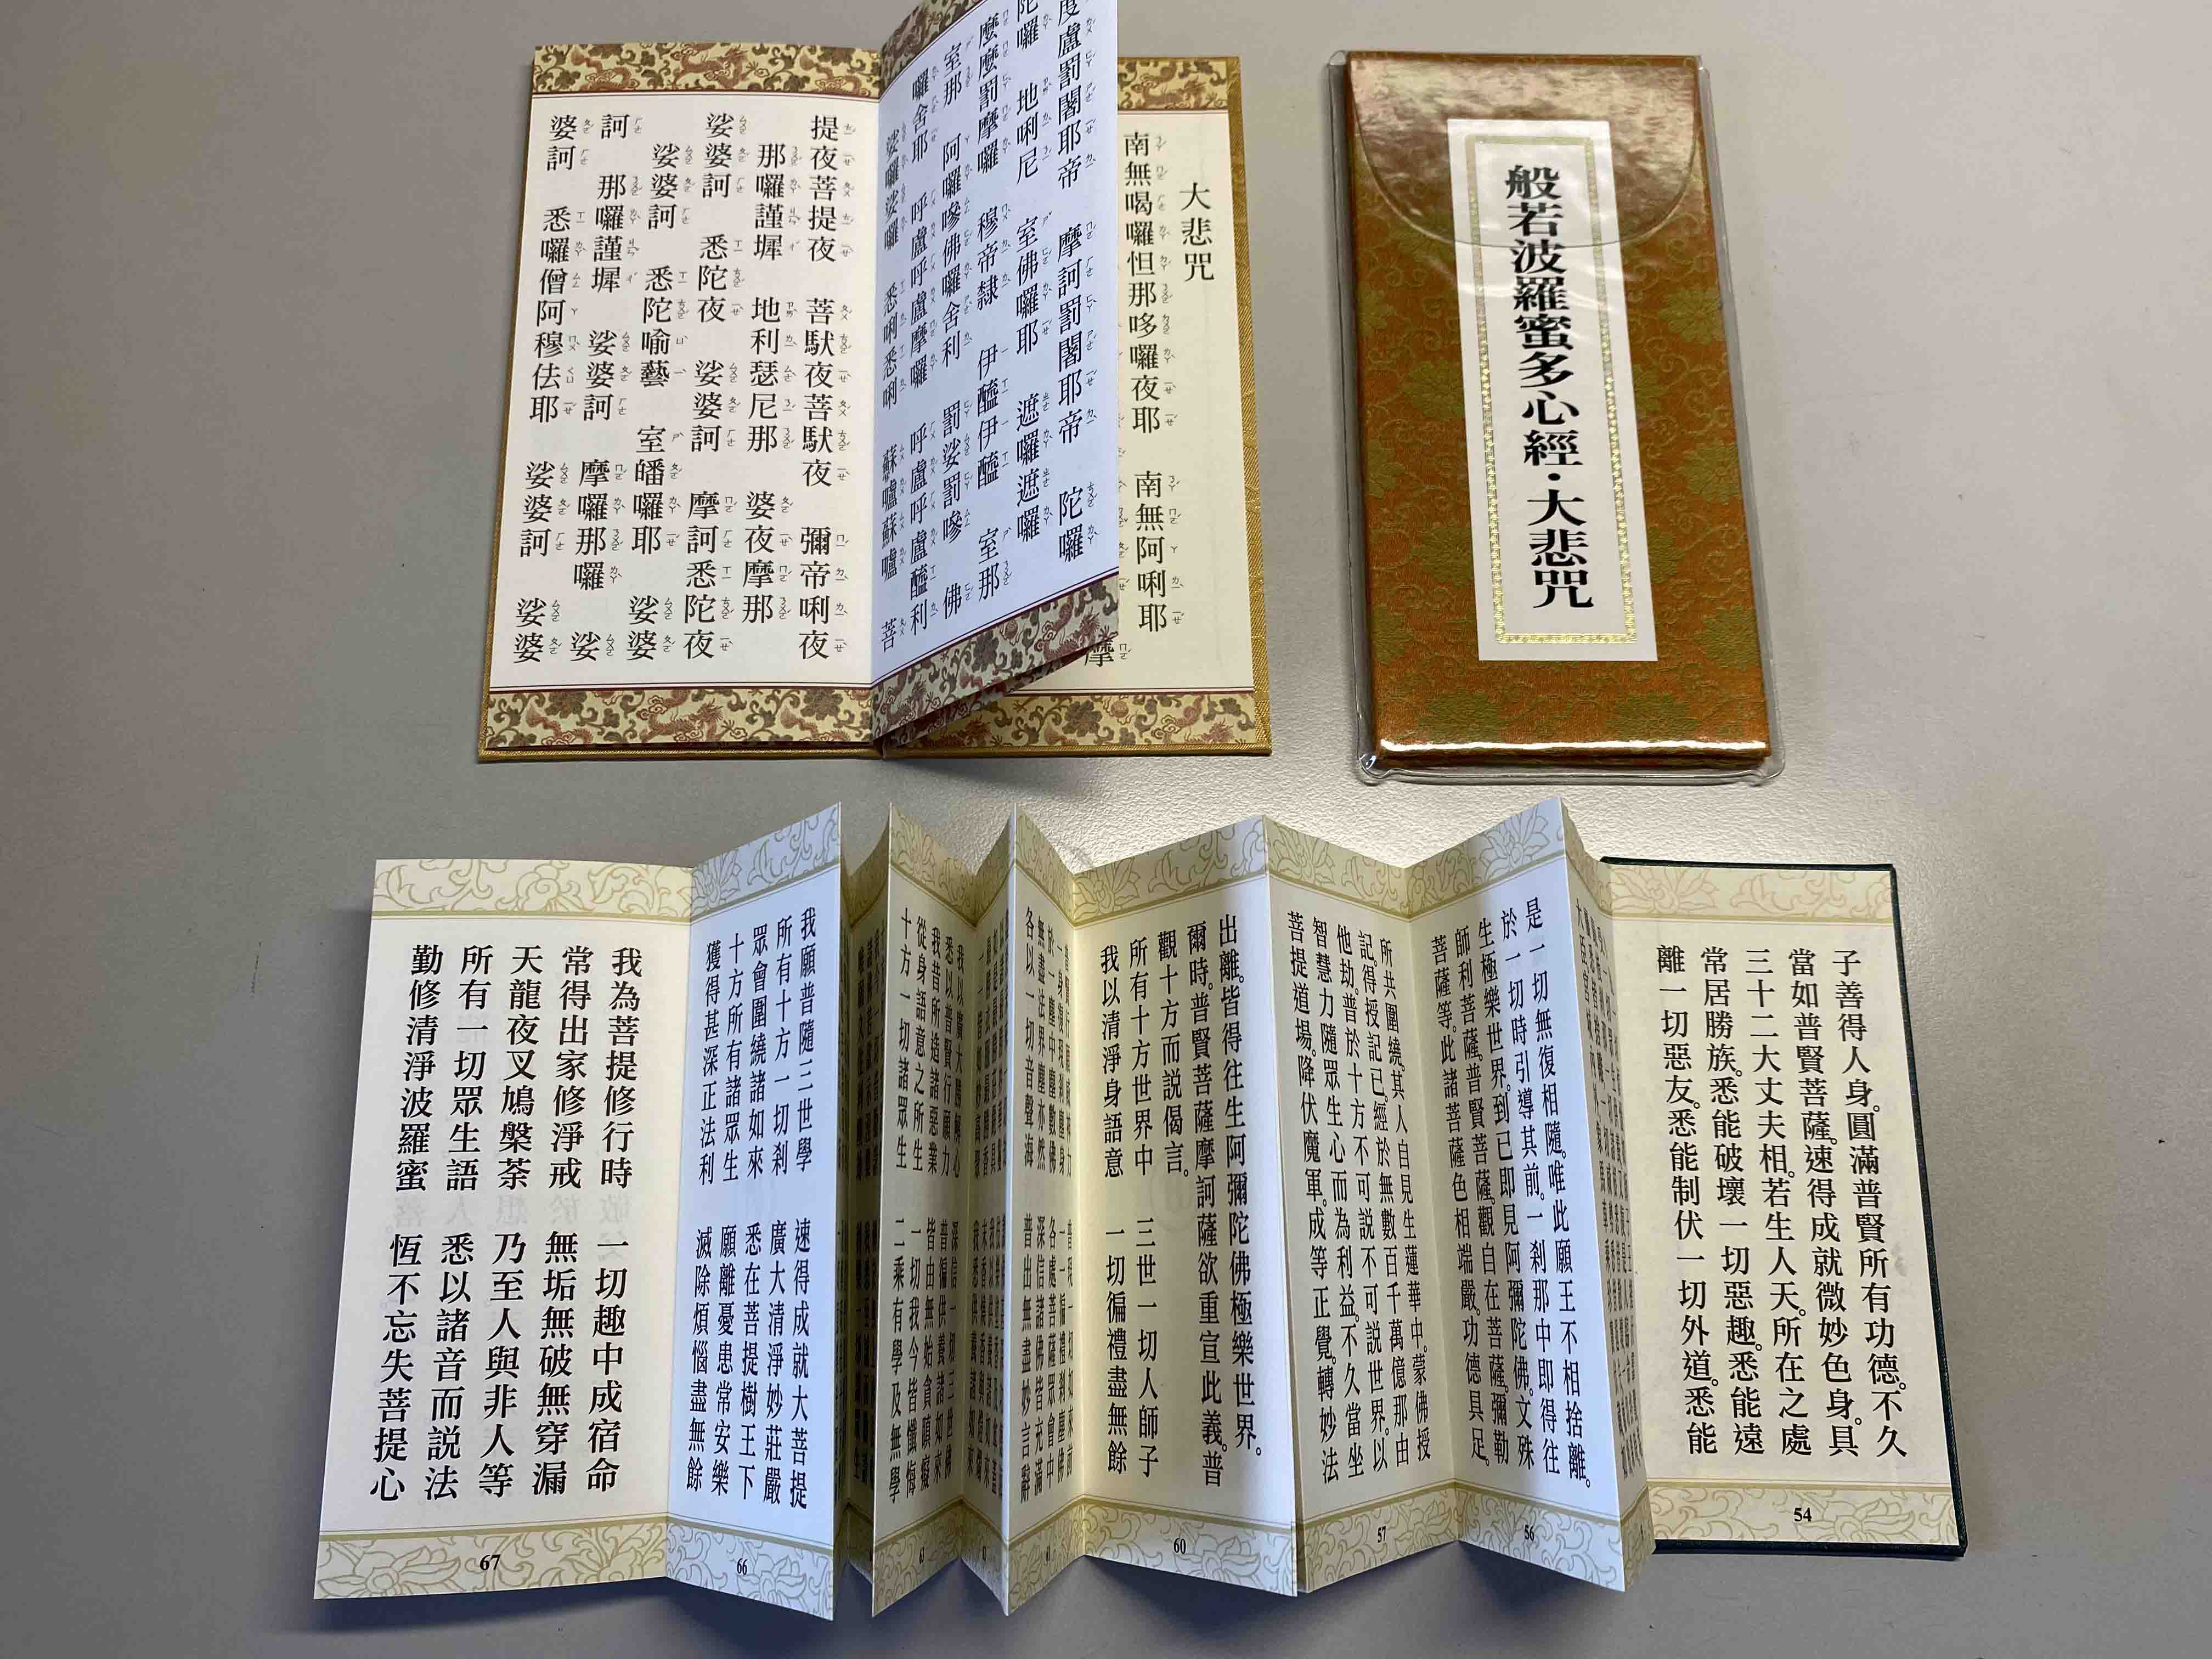 大悲咒
南無喝囉怛那哆囉夜耶　南無阿唎耶
摩
度盧罰闍耶帝　摩訶罰闍耶帝　陀囉
陀囉　地唎尼　室佛囉耶　遮囉遮囉
麼麼罰摩囉　穆帝隸　伊醯伊醯　室那
室那　阿囉嘇佛囉舍利　罰娑罰嘇　佛
囉舍耶　呼盧呼盧摩囉　呼盧呼盧醯利
娑囉娑囉　悉唎悉唎　蘇嚧蘇嚧　菩
提夜菩提夜　菩馱夜菩馱夜　彌帝唎夜
那囉謹墀　地利瑟尼那　婆夜摩那
娑婆訶　悉陀夜　娑婆訶　摩訶悉陀夜
娑婆訶　悉陀喻藝　室皤囉耶　娑婆
訶　那囉謹墀　娑婆訶　摩囉那囉　娑
婆訶　悉囉僧阿穆佉耶　娑婆訶　娑婆
般若波羅蜜多心經・大悲咒
子善得人身。圓滿普賢所有功德。不久
當如普賢菩薩。速得成就微妙色身。具
三十二大丈夫相。若生人天。所在之處
常居勝族。悉能破壞一切惡趣。悉能遠
離一切惡友。悉能制伏一切外道。悉能
54
是一切無復相隨。唯此願王不相捨離。
於一切時引導其前。一剎那中即得往
生極樂世界。到已即見阿彌陀佛。文殊
師利菩薩。普賢菩薩。觀自在菩薩。彌勒
菩薩等。此諸菩薩色相端嚴。功德具足。
56
所共圍繞。其人自見生蓮華中。蒙佛授
記。得授記已。經於無數百千萬億那由
他劫。普於十方不可說不可說世界。以
智慧力隨眾生心而為利益。不久當坐
菩提道場。降伏魔軍。成等正覺。轉妙法
57
出離。皆得往生阿彌陀佛極樂世界。
爾時。普賢菩薩摩訶薩欲重宣此義。普
觀十方而說偈言。
所有十方世界中　三世一切人師子
我以清淨身語意　一切徧禮盡無餘
60
普賢行願威神力　普現一切如來前
一身復現剎塵身　一一徧禮剎塵佛
於一塵中塵數佛　各處菩薩眾會中
無盡法界塵亦然　深信諸佛皆充滿
各以一切音聲海　普出無盡妙言辭
我以廣大勝解心　深信一切三世佛
悉以普賢行願力　普徧供養諸如來
我昔所造諸惡業　皆由無始貪瞋癡
從身語意之所生　一切我今皆懺悔
十方一切諸眾生　二乘有學及無學
我願普隨三世學　速得成就大菩提
所有十方一切剎　廣大清淨妙莊嚴
眾會圍繞諸如來　悉在菩提樹王下
十方所有諸眾生　願離憂患常安樂
獲得甚深正法利　滅除煩惱盡無餘
66
我為菩提修行時　一切趣中成宿命
常得出家修淨戒　無垢無破無穿漏
天龍夜叉鳩槃荼　乃至人與非人等
所有一切眾生語　悉以諸音而說法
勤修清淨波羅蜜　恆不忘失菩提心
67